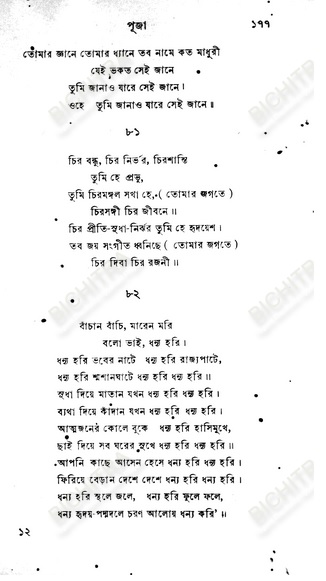 পূজা ১৭৭
তোমার জ্ঞানে তোমার ধ্যানে তব নামে কত মাধুরী
যেই ভকত সেই জানে
তুমি জানাও যারে সেই জানে।
ওহে তুমি জানাও যারে সেই জানে॥
৮১
চির বন্ধু, চির নির্ভর, চিরশান্তি
তুমি হে প্রভু,
তুমি চিরমঙ্গল সখা হে, ( তোমার জগতে )
চিরসঙ্গী চির জীবনে॥
চির প্রীতি-সুধা-নির্ঝর তুমি হে হৃদয়েশ।
তব জয় সংগীত ধ্বনিছে ( তোমার জগতে )
চির দিবা চির রজনী॥
৮২
বাঁচান বাঁচি, মারেন মরি
বলো ভাই, ধন্য হরি।
ধন্য হরি ভবের নাটে ধন্য হরি রাজ্যপাটে,
ধন্য হরি শ্মশানঘাটে ধন্য হরি ধন্য হরি॥
সুধা দিয়ে মাতান যখন ধন্য হরি ধন্য হরি।
ব্যথা দিয়ে কাঁদান যখন ধন্য হরি ধন্য হরি।
আত্মজনের কোলে বুকে ধন্য হরি হাসিমুখে,
ছাই দিয়ে সব ঘরের সুখে ধন্য হরি ধন্য হরি॥
আপনি কাছে আসেন হেসে ধন্য হরি ধন্য হরি।
ফিরিয়ে বেড়ান দেশে দেশে ধন্য হরি ধন্য হরি।
ধন্য হরি স্থলে জলে, ধন্য হরি ফুলে ফলে,
ধন্য হৃদয়-পদ্মদলে চরণ আলোয় ধন্য করি॥
১২
BICHITRA